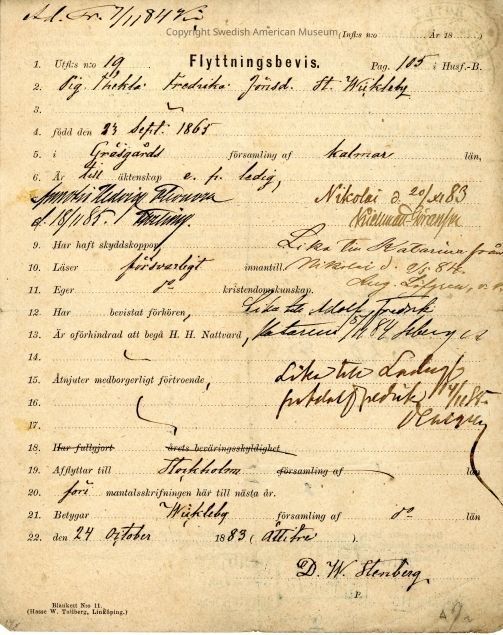 Ad. Fr. 7/11 84
Copyright Swedish American Museum
(Infl:s n:o År 18
1. Utfl:s n:o 19 Flyttningsbevis. Pag. 105 i Husf.-B.
2. Pig. Thekla Fredrika Jönsd. St. Wickleby
3.
4. född den 23 Sept. 1865
5. i Gräsgårds församling af Kalmar län,
6. Är till äktenskap e. fr. ledig,
Nikolai d. 20/11 83
Hedvig Eleonora
d. 18/1185.
9. Har haft skyddskoppor,
Lika till Katarina från
10. Läser försvarligt innantill.
Nikolai d. 84.
11. Eger do kristendomskunskap.
Aug. Löfgren,
12. Har bevistat förhören,
Lika till Adolf Fredrik
13. Är oförhindrad att begå H. H. Nattvard,
Katarina 84
14.
15. Åtnjuter medborgerligt förtroende,
Lika till
16.
Adolf Fredrik 14/1185.
17.
18. Har fullgjort årets beväringsskyldighet
19. Afflyttar till Stockholm församling af län
20. före mantalsskrifningen här till nästa år.
21. Betygar Wickleby församling af do län
22. den 24 October 1883 (åttitre)
D. W. Stenberg
P.
Blankett N:o 11.
(Hasse W. Tullberg, Linköping.)